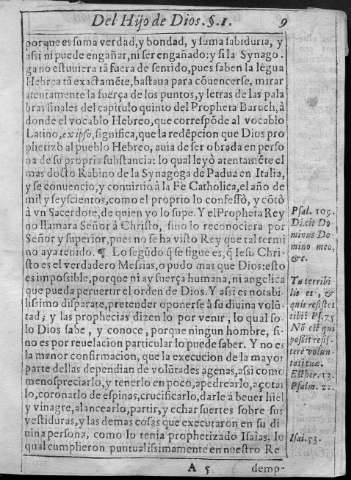 Del Hijo de Dios. §. 1. 9
porque es suma verdad, y bondad, y suma sabiduria, y
assi ni puede engañar, ni ser engañado: y si la Synago.
ga no estuuiera tã fuera de sentido, pues saben la lẽgua
Hebrea tã exactamẽte, bastaua para cõuencerse, mirar
atentamente la fuerça de los puntos, y letras de las pala
bras finales del capitulo quinto del Propheta Baruch, à
donde el vocablo Hebreo, que correspõde al vocablo
Latino, ex ipso, significa, que la redẽpcion que Dios pro
phetizò al pueblo Hebreo, auia de ser obrada en perso
na de su propria substancia: lo qual leyò atentamẽte el
mas docto Rabino de la Synagoga de Padua en Italia,
y se conuencio, y conuirtio à la Fè Catholica, el año de
mil y seyscientos, como el proprio lo confessò, y cõtò
à vn Sacerdote, de quien yo lo supe. Y el Propheta Rey
no llamara Señor à Christo, sino lo reconociera por
Señor y superior, pues no se ha visto Rey que tal termi
no aya tenido. ¶ Lo segũdo q̃ se sigue es, q̃ Iesu Chri-
sto es el verdadero Messias, o pudo mas que Dios: esto
es impossible, porque ni ay fuerça humana, ni angelica
que pueda peruertir el orden de Dios. Y assi es notabi
lissimo disparate, pretender oponerse à su diuina volũ
tad; y las prophecias dizen lo por venir, lo qual so-
lo Dios sabe, y conoce, porque ningun hombre, si-
no es por reuelacion particular lo puede saber. Y no es
la menor confirmacion, que la execucion de la mayor
parte dellas dependian de volũtades agenas, assi como
menospreciarlo, y tenerlo en poco, apedrearlo, açotar
lo, coronarlo de espinas, crucificarlo, darle à beuer hiel
y vinagre, alancearlo, partir, y echar suertes sobre sus
vestiduras, y las demas cosas que executaron en su di
uina persona, como lo tenia prophetizado Isaias. lo
qual cumplieron puntualissimamente en nuestro Re
A 5 demp-
Psal. 109.
Dicit Do
minus Do
mino meo,
&c.
Tu terribi
lis es, &
quis resistet
tibi? Ps. 75
Nõ est qui
possit resis-
tere volun-
tati tuæ.
Esther. 13.
Psalm. 21.
Isai. 53.